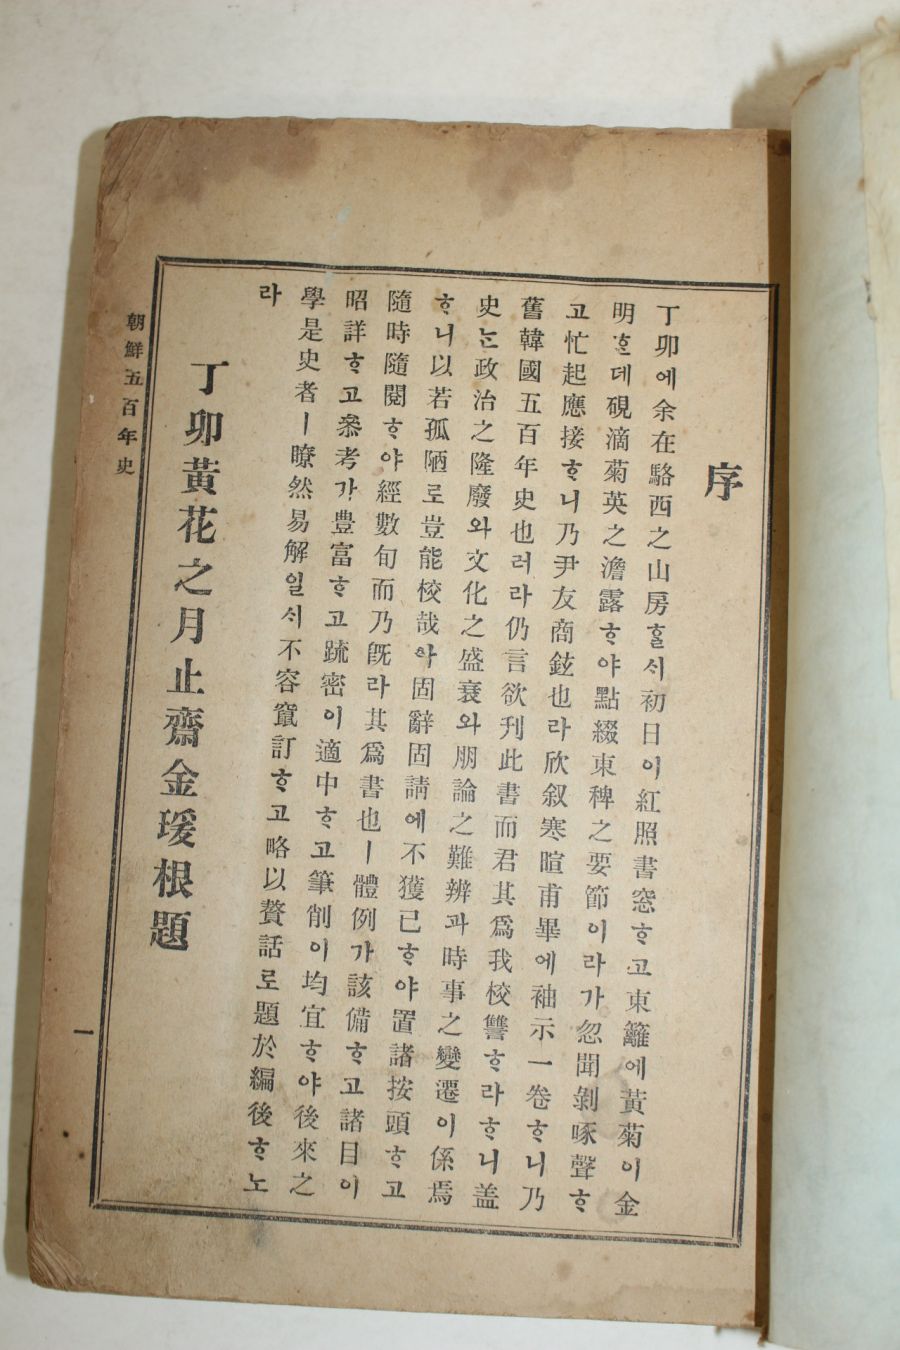 序
丁卯에余在駱西之山房ᄒᆞᆯᄉᆡ初日이紅照書窓ᄒᆞ고東籬에黃菊이金
明ᄒᆞᆫ데硯滴菊英之澹露ᄒᆞ야點綴東稗之要節이라가忽聞剝啄聲ᄒᆞ
고忙起應接ᄒᆞ니乃尹友商鉉也라欣叙寒暄甫畢에袖示一卷ᄒᆞ니乃
舊韓國五百年史也러라仍言欲刊此書而君其爲我校讐ᄒᆞ라ᄒᆞ니盖
史ᄂᆞᆫ政治之隆廢와文化之盛衰와朋論之難辨과時事之變遷이係焉
ᄒᆞ니以若孤陋로豈能校哉아固辭固請에不獲已ᄒᆞ야置諸按頭ᄒᆞ고
隨時隨閱ᄒᆞ야經數旬而乃旣라其爲書也ㅣ體例가該備ᄒᆞ고諸目이
昭詳ᄒᆞ고叅考가豊富ᄒᆞ고疏密이適中ᄒᆞ고筆削이均宜ᄒᆞ야後來之
學是史者ㅣ瞭然易解일ᄉᆡ不容竄訂ᄒᆞ고略以贅話로題於編後ᄒᆞ노
라
丁卯黃花之月止齋金瑗根題
朝鮮五百年史
一